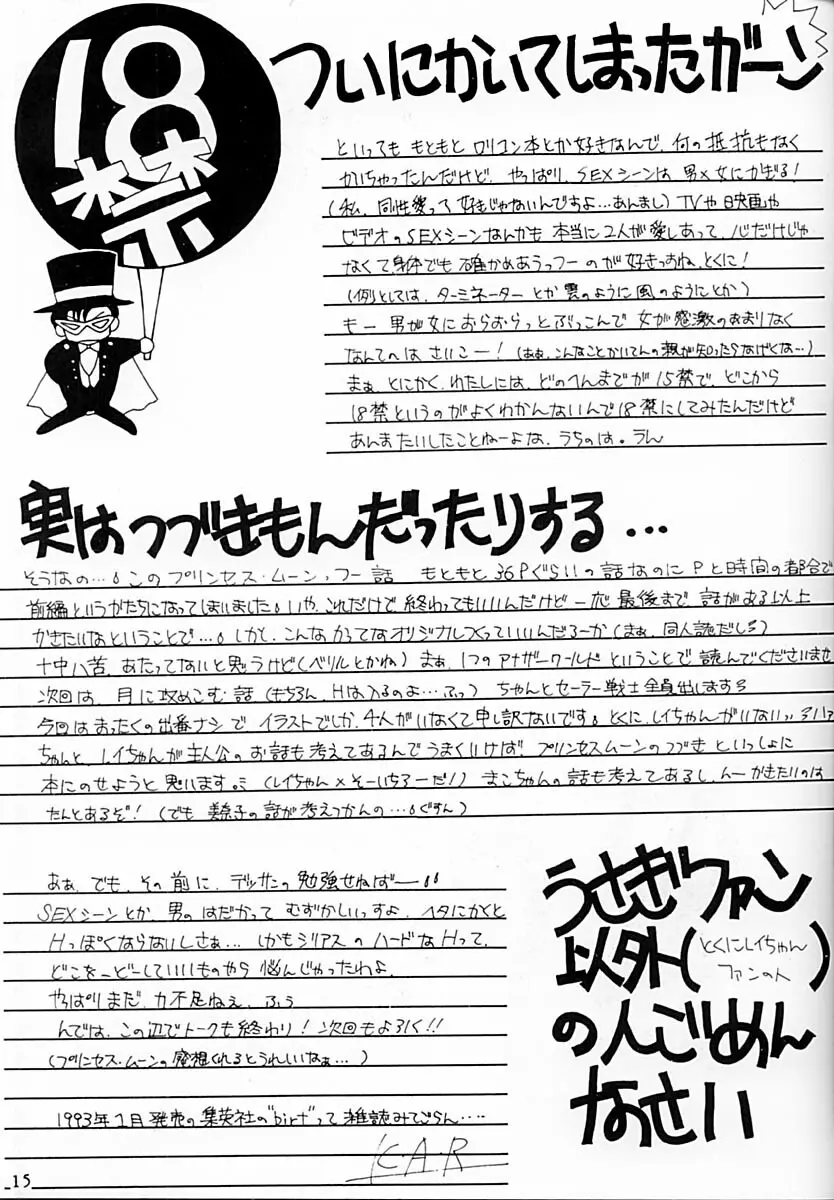 18禁
ついにかいてしまったガーン
といっても もともと ロリコン本とか好きなんで、何の抵抗もなく
かいちゃったんだけど、やっぱり、SEXシーンは 男×女にかぎる!
(私、同性愛って 好きじゃないんですよ…あんまし) TVや映画や
ビデオのSEXシーンなんかも 本当に2人が愛しあって、心だけじゃ
なくて身体でも 確かめあうっつーのが好きっすね、とくに!
(例としては、ターミネーター とか 雲のように風のようにとか)
もー 男が女に おらおらっとぶっこんで 女が感激のあまりなく
なんてへは さいこー! (ああ、こんなことかいてんの親が知ったらなげくな…)
まぁ、とにかく、わたしには、どのへんまでが15禁で、どこから
18禁というのがよくわかんないんで18禁にしてみたんだけど
あんまたいしたことねーよな、うちのは。うん
実はつづきもんだったりする…
そうなの…。このプリンセス・ムーンっつー話 もともと36Pぐらいの話なのに Pと時間の都合で
前編というかたちになってしまいました。いや、これだけで 終わってもいいんだけど 一応 最後まで 話がある以上
かきたいなということで…。しかし、こんなかってなオリジナルつくっていいんだろーか (まぁ、同人誌だしろ)
十中八苦、あたってないと思うけど (ベリルとかね) まぁ、1つのアナザーワールド ということで 読んでくださいませ
次回は、月に攻めこむ話 (もちろん、Hは入るのよ…ふっ) ちゃんとセーラー戦士全員出します
今回はまったくの出番ナシで イラストでしか、4人がいなくて申し訳ないです。とくに、レイちゃんがいない
ちゃんと、レイちゃんが主人公の お話も考えてあるんで うまくいけば、プリンセスムーンのつづき といっしょに
本にのせようと 思います。 (レイちゃん×そーいちろーだ!) まこちゃんの話も考えてあるし、んー かきたいのは
たんとあるぞ! (でも 美奈子の話が考えつかんの…。ぐすん)
あぁ、でも、その前に、デッサンの 勉強せねばー
SEXシーンとか、男のはだかって むずかしいっすよ、ヘタにかくと
Hっぽくならないしさぁ… しかもシリアスのハードなHって、
どこをーどーしていいものやら 悩んじゃったわよ、
やっぱりまだ、力不足ねぇ、ふぅ
んでは、この辺でトークも終わり! 次回もよろしく!!
(プリンセス・ムーンの感想くれるとうれしいなぁ…)
1993年1月発売の集英社の"birt"って雑誌みてごらん…
K.A.R
うさぎファン
以外(とくにレイちゃんファンの人)
の人ごめん
なさい
15